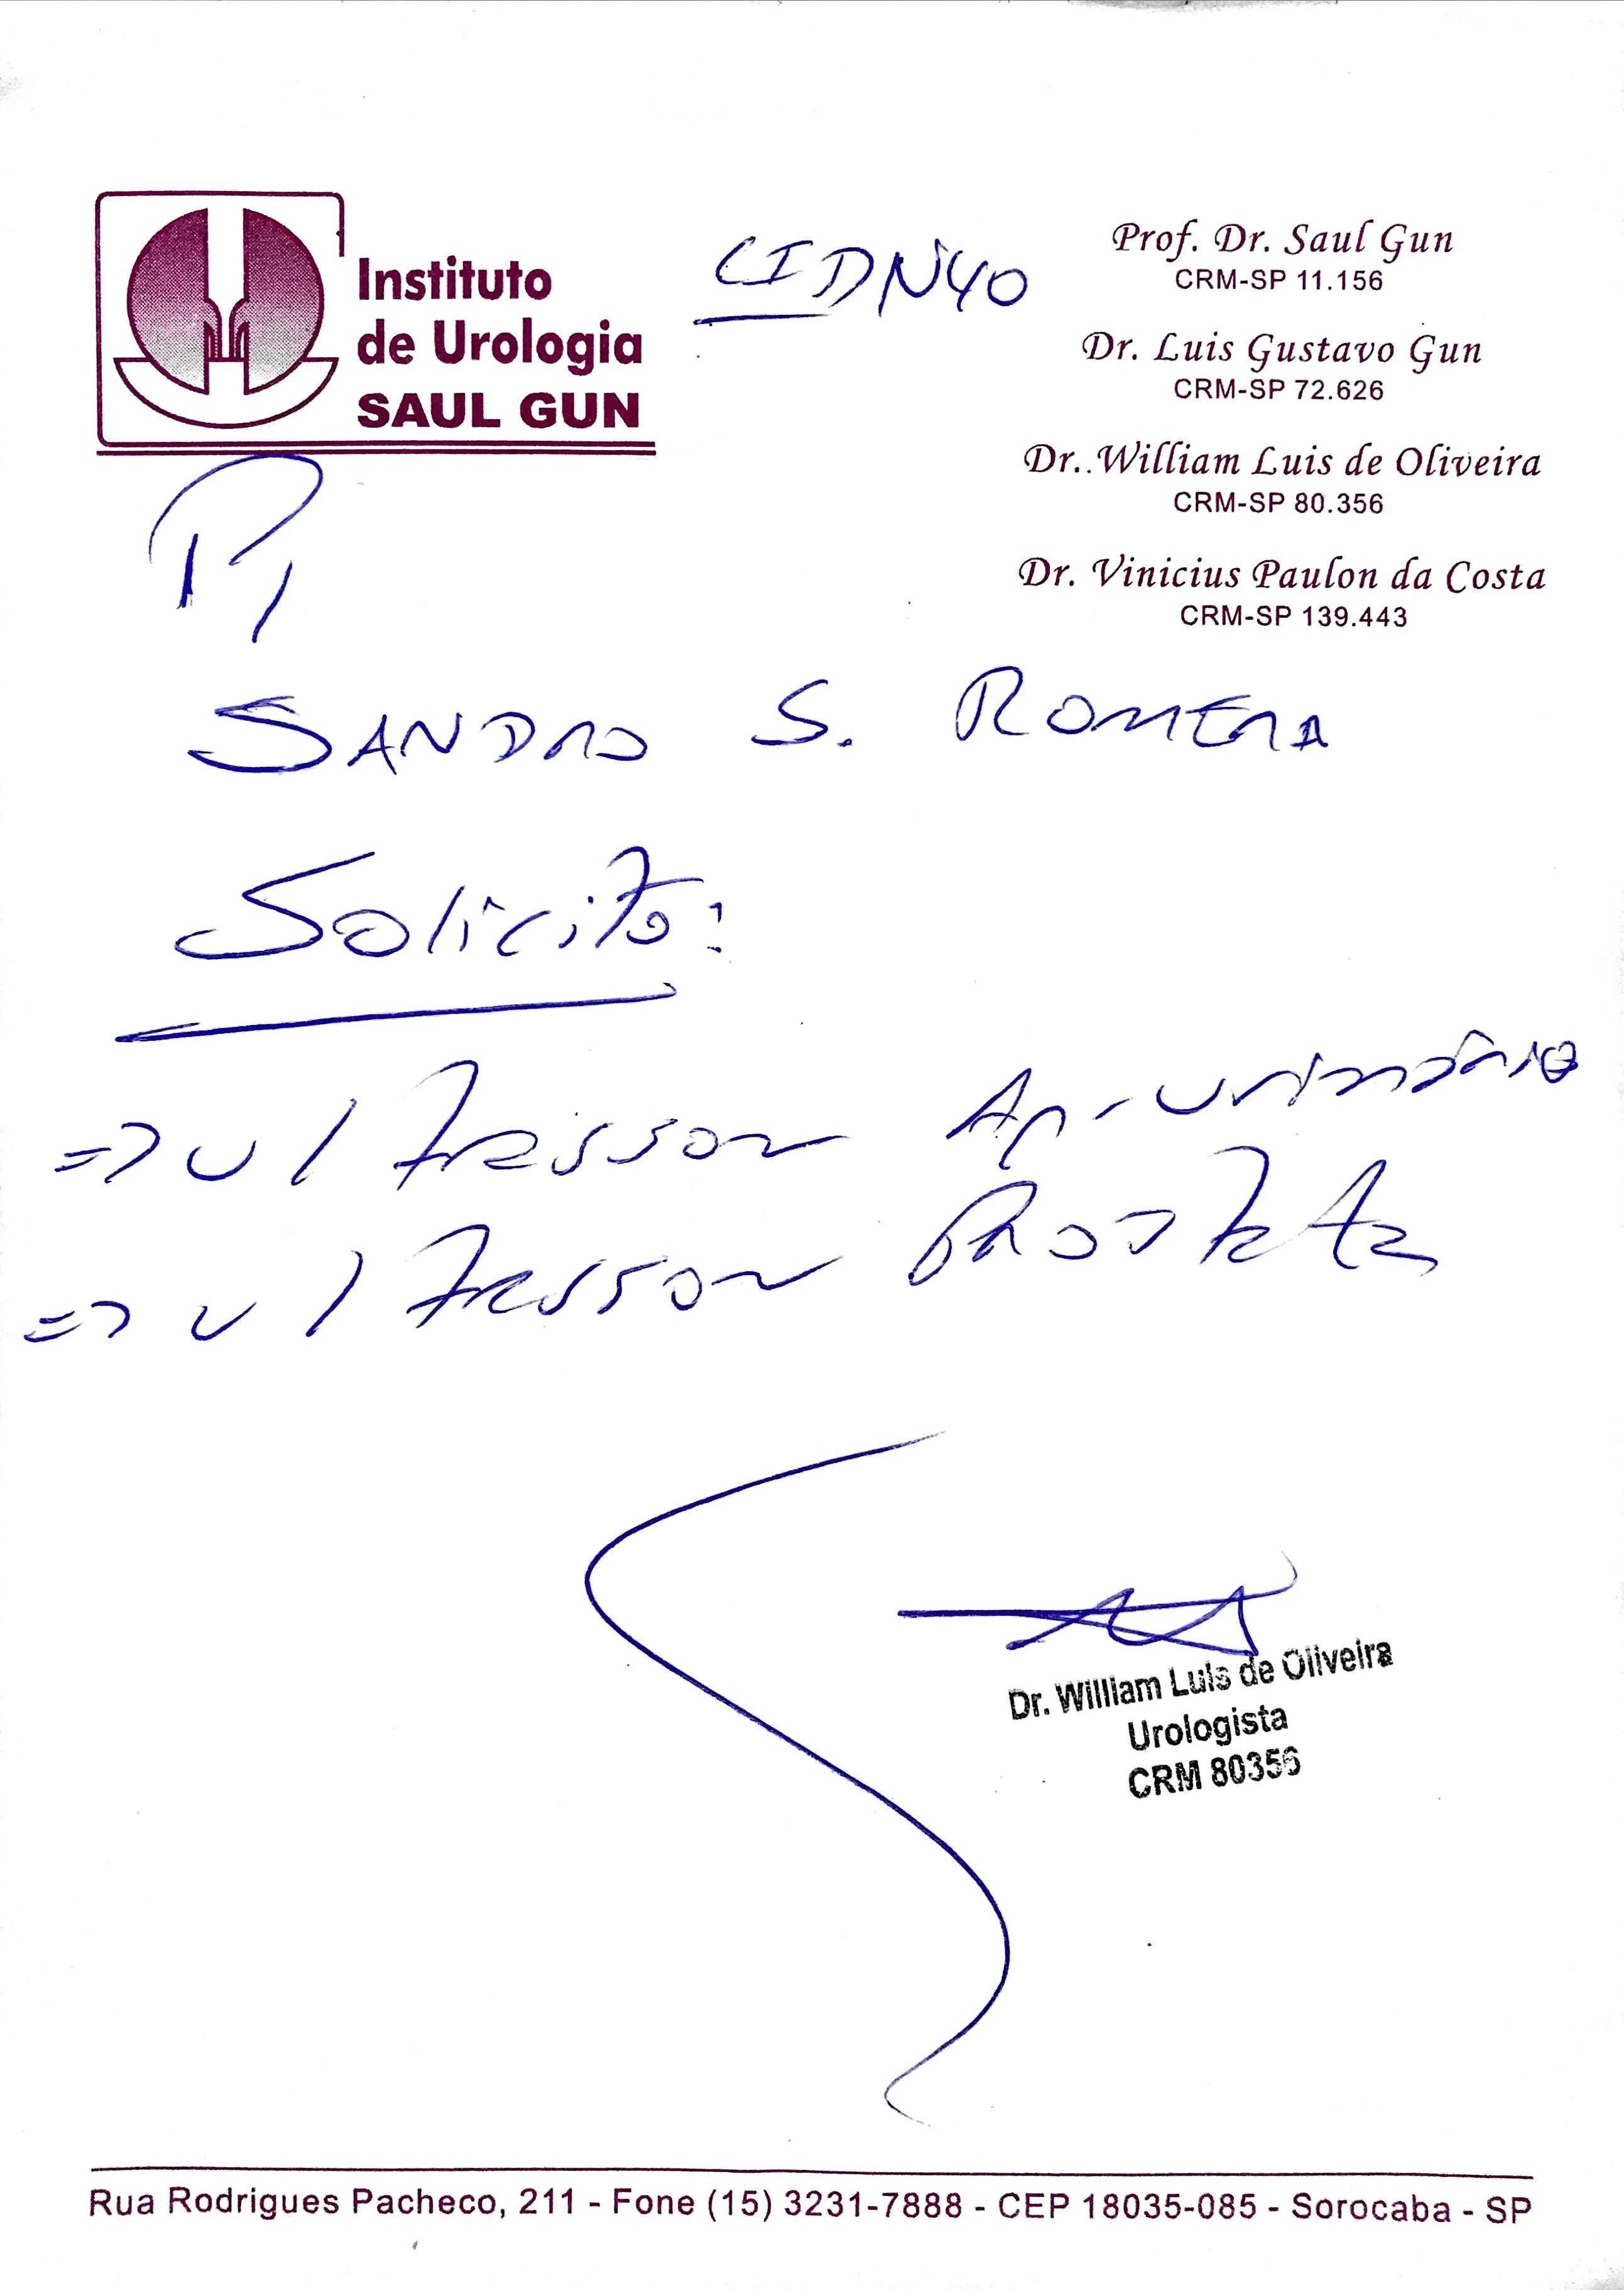 Instituto
de Urologia
SAUL GUN
CID N40
Prof. Dr. Saul Gun
CRM-SP 11.156
Dr. Luis Gustavo Gun
CRM-SP 72.626
Dr. William Luis de Oliveira
CRM-SP 80.356
Dr. Vinicius Paulon da Costa
CRM-SP 139.443
P/
SANDRO S. ROMERA
Solicito:
=> Ultrasson Ap. urinário
=> Ultrasson Próstata
Dr. William Luis de Oliveira
Urologista
CRM 80356
Rua Rodrigues Pacheco, 211 - Fone (15) 3231-7888 - CEP 18035-085 - Sorocaba - SP